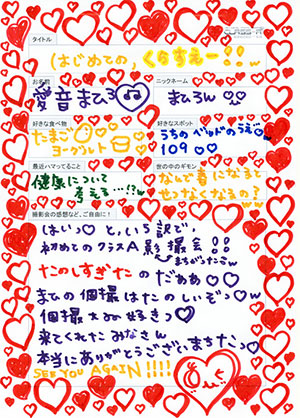 CLASS-A
タイトル
はじめての、くらすえー!!
お名前
ニックネーム
愛音まひろ
まひろん
好きな食べ物
好きなスポット
たまご
ヨークグルト
うちのべっどのうえ
109
最近ハマってること
世の中のギモン
健康について
考える…!?w
なんで春になると
せつなくなるの?
撮影会の感想など、ご自由に!
はいっ と、いう訳で、
初めてのクラスA影撮会!!
まちがったごw
たのしすぎたのだぁぁ
まひの個撮はたのしいぞっ
個撮大好きっ
来てくれたみなさん
本当にありがとうございまきたっ
SEE YOU AGAIN!!!!